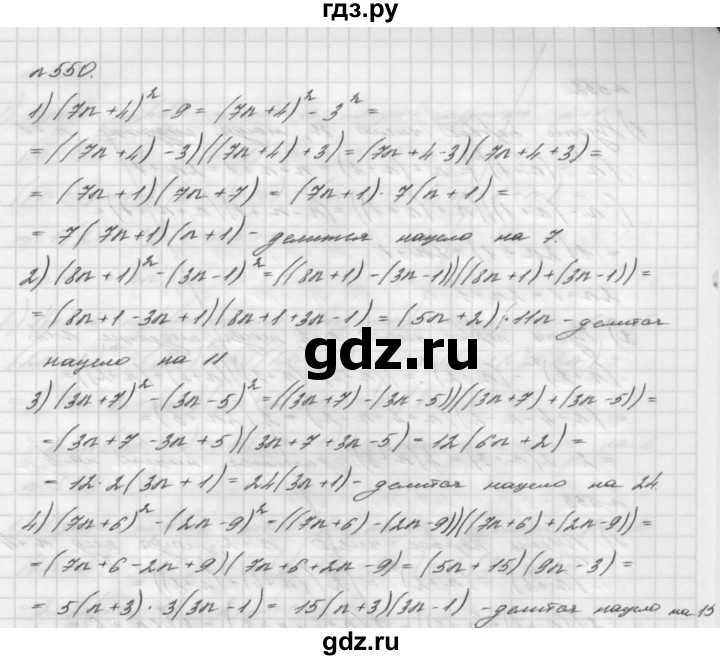 гдз.ру
n 550.
1) (7n+4)² - 9 = (7n+4)² - 3² =
= ((7n+4) - 3)((7n+4)+3) = (7n+4-3)(7n+4+3) =
= (7n+1)(7n+7) = (7n+1)·7(n+1) =
= 7(7n+1)(n+1) - делится нацело на 7.
2) (8n+1)² - (3n-1)² = ((8n+1) - (3n-1))((8n+1)+(3n-1)) =
= (8n+1-3n+1)(8n+1+3n-1) = (5n+2)·11n - делится
нацело на 11
gdz.ru
3) (3n+7)² - (3n-5)² = ((3n+7) - (3n-5))((3n+7)+(3n-5)) =
= (3n+7-3n+5)(3n+7+3n-5) = 12(6n+2) =
= 12·2(3n+1) = 24(3n+1) - делится нацело на 24.
4) (7n+6)² - (2n-9)² = ((7n+6) - (2n-9))((7n+6)+(2n-9)) =
= (7n+6-2n+9)(7n+6+2n-9) = (5n+15)(9n-3) =
= 5(n+3)·3(3n-1) = 15(n+3)(3n-1) - делится нацело на 15
gdz.ru